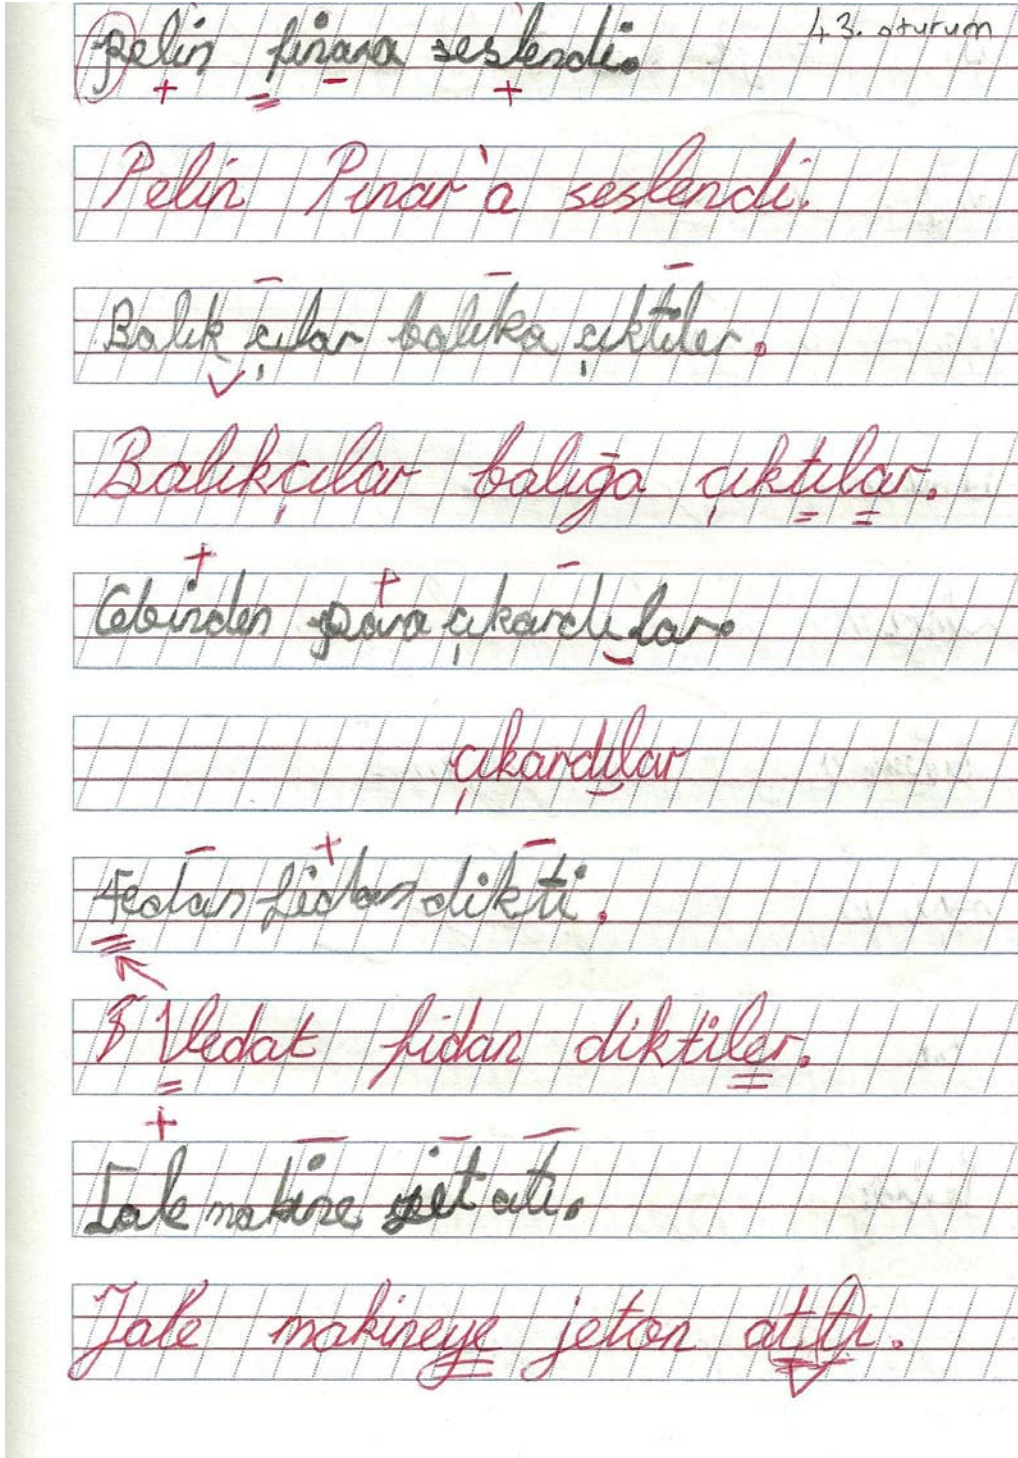 43. oturum
pelin finara seslendi.
Pelin Pınar'a seslendi.
Balık çılar balıka çıktiler.
Balıkçılar balığa çıktılar.
Cebinden para çıkardılar.
çıkardılar
fidan dikti.
Vedat fidan diktiler.
makine jet atı.
Jale makineye jeton attı.